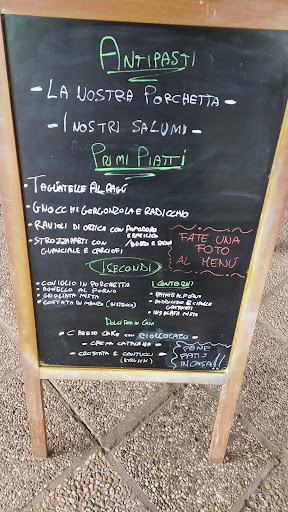 ANTIPASTI
- LA NOSTRA PORCHETTA -
- I NOSTRI SALUMI -
PRIMI PIATTI
• TAGLIATELLE AL RAGÙ
• GNOCCHI GORGONZOLA E RADICCHIO
• RAVIOLI DI ORTICA CON POMODORO
E BASILICO
• STROZZAPRETI CON
GUANCIALE E CARCIOFI
FATE UNA
FOTO
AL MENU
I SECONDI
• CONIGLIO IN PORCHETTA
• AGNELLO AL FORNO
• GRIGLIATA MISTA
• COSTATA DI MANZO
I CONTORNI
• PATATE AL FORNO
• INSALATA MISTA
DOLCI FATTI IN CASA
• CHEESE CAKE CON CIOCCOLATO
• CREMA CATALANA
• CROSTATA E CANTUCCI
PANE
FATTO
IN CASA!!